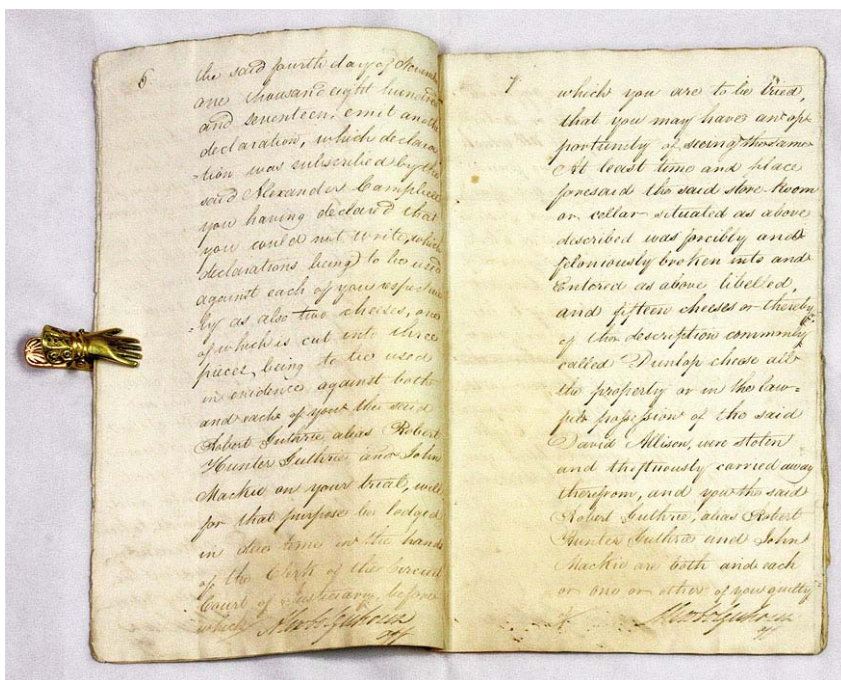 6
the said fourth day of
one thousand eight hundred
and seventeen, emit another
declaration, which declara
-tion was subscribed by the
said Alexander Campbell
you having declared that
you could not write, which
declarations being to be used
against each of you respective
-ly as also two cheeses, one
of which is cut into three
pieces, being to be used
in evidence against both
and each of you the said
Robert Guthrie alias Robert
Hunter Guthrie and John
Mackie on your trial, will
for that purpose be lodged
in due time in the hands
of the Clerk of the Circuit
Court of Justiciary, before
which
7
which you are to be tried,
that you may have an op
portunity of seeing the same
At least time and place
foresaid the said store-Room
or cellar situated as above
described was forcibly and
feloniously broken into and
Entered as above libelled,
and fifteen cheeses or thereby
of the description commonly
called Dunlop cheese all
the property or in the law=
full possession of the said
David Allison, were stolen
and theftuously carried away
therefrom, and you the said
Robert Guthrie, alias Robert
Hunter Guthrie and John
Mackie are both and each
or one or other of you guilty